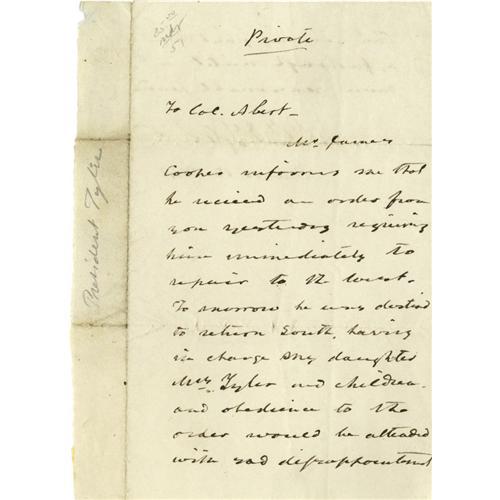 Private
To Col. Abert_
Mr James
Cooper informs me that
he received an order from
you yesterday requiring
him immediately to
repair to the West.
To morrow he was destined
to return South, having
in charge my daughter
Mrs Tyler and children
and obedience to the
order would be attended
with sad disappointment
President Tyler